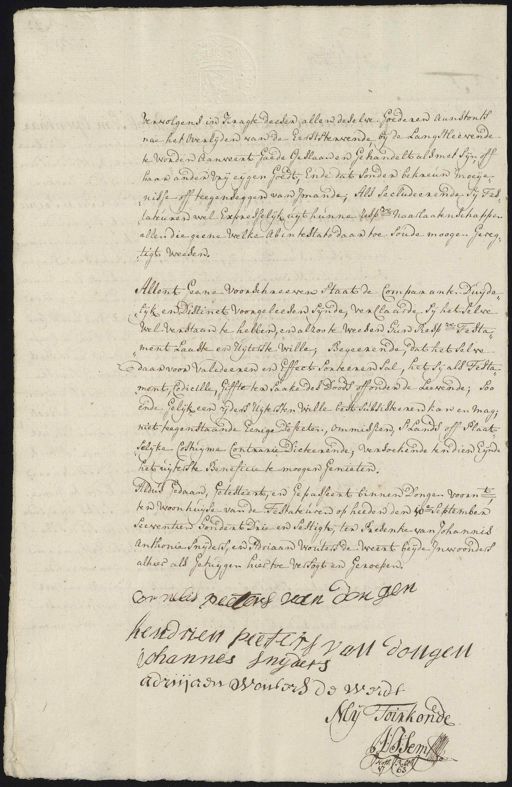 vervolgens in kragte deeser, allen deselve Goederen Aanstonts
nae het Overlyden van de Eerststervende, by de Langstleevende
te worden Aanveert Gaede Geslaan en Gehandelt als met Syn, off
haar ander vrij eygen Goedt, Ende dat sonder bekreun moeye-
nisse off teegenseggen van Jmande, Als Secludeerende Sy Tes-
tateuren wel Expresselyk uyt hunne resp.ve Naarlaatenschappe
allen die geene welke Ab intestato daar toe Soude moogen Gereg-
tigt weesen.
Allent Geene Voorschreeven Staat de Comparante Duyde-
lyk en Distinct voorgeleesen Synde, verClaarde Sy het Selve
wel verstaan te hebben, en alsoo te weesen haer Resp.ve Testa-
ment Laatste en Uyterste Wille; Begeerende, dat het Selve
daarvoor Valideeren en Effect Sorteeren Sal, het Sij als Testa-
ment, Codicille, Giffte ter Saake des Doods off onder de Leevende; Soo
ende Gelyk een yders Uytersten Wille best Subsisteeren kan en mag,
niet teegenstaande Eenige Defecten, Ommissien, S'Lands off Plaat-
selyke Costuyme Contrarie Dicteerende, versoekende ten dien Eynde
het uyterste Beneficie te moogen Genieten.
Aldus Gedaan, Getesteert, en Gepasseert binnen Dongen voornt.
ten Woonhuyse van de Testateuren op heeden den September
Seeventien hondert Drie en Sestigh, ter Presentie van Johannis
Anthonie Snyders, en Adriaan Wouters de Weert beyde Inwoonders
alhier als Getuygen hier toe versogt en Geroepen.
Cornelis peeters van dongen
hendrien peeters van dongen
Johannes Snyders
adriiaen Wouters de Werdt
Mij Toirkonde